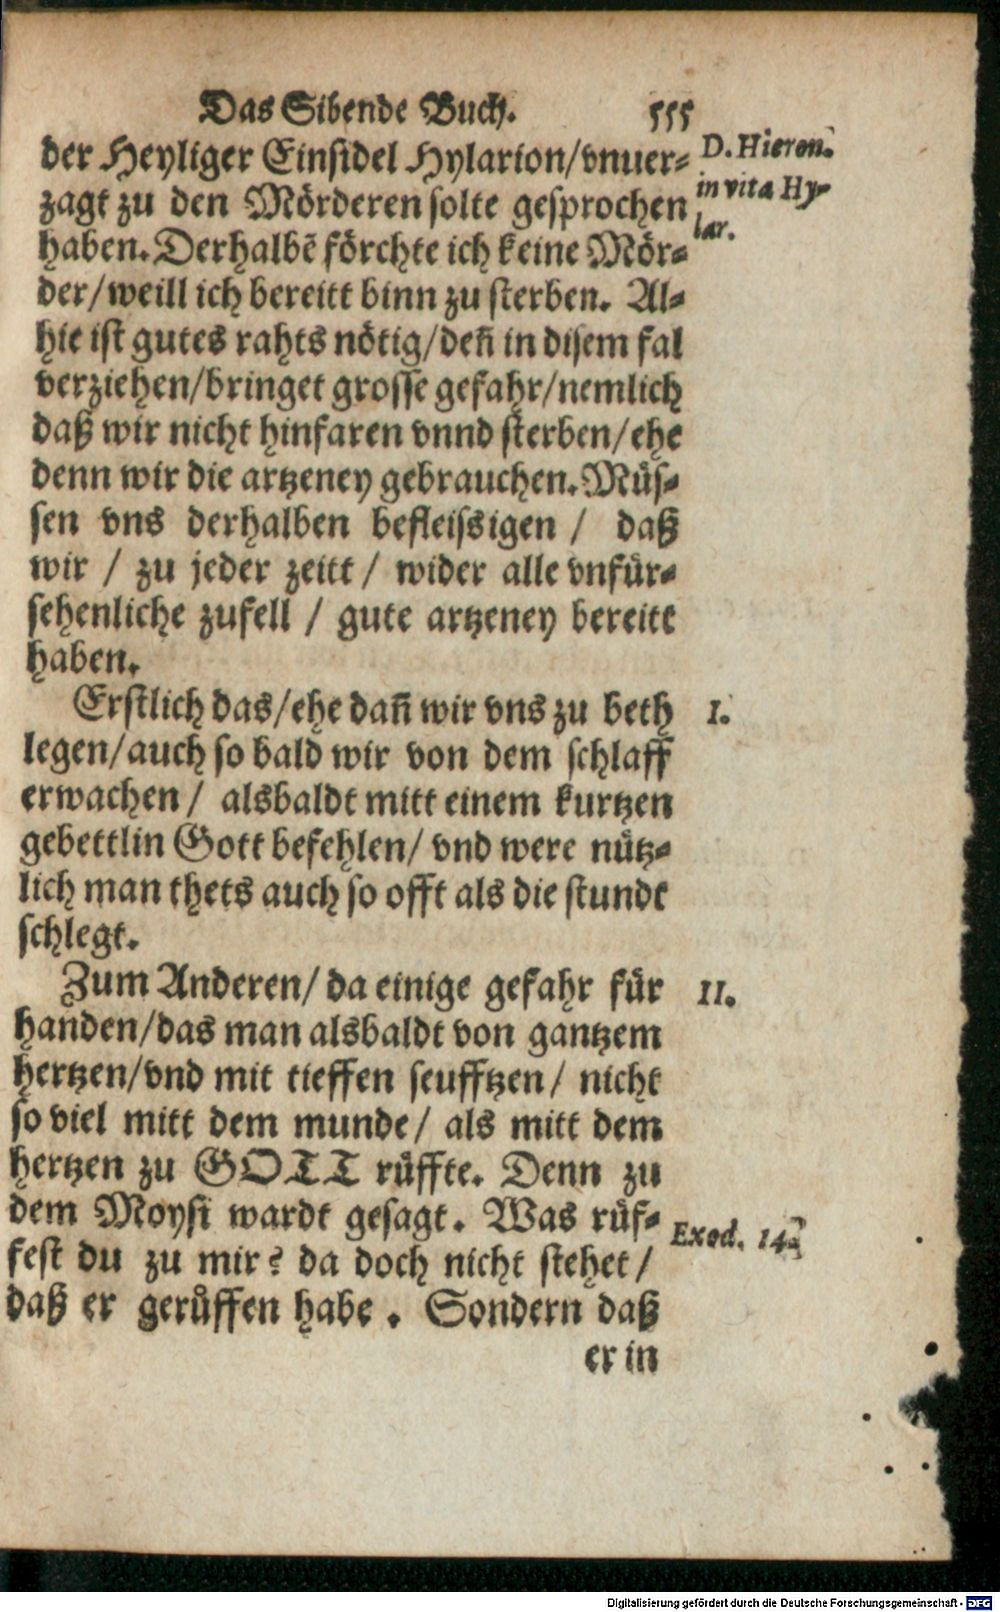 Das Sibende Buch. 555
der Heyliger Einsidel Hylarion/vnuer-
zagt zu den Mörderen solte gesprochen
haben. Derhalbē förchte ich keine Mör-
der/weill ich bereitt binn zu sterben. Al-
hie ist gutes rahts nötig/deñ in disem fal
verziehen/bringet grosse gefahr/nemlich
daß wir nicht hinfaren vnnd sterben/ehe
denn wir die artzeney gebrauchen. Müs-
sen vns derhalben befleissigen / daß
wir / zu jeder zeitt / wider alle vnfür-
sehenliche zufell / gute artzeney bereitt
haben.
D. Hieron.
in vita Hy-
lar.
Erstlich das/ehe dañ wir vns zu beth
legen/auch so bald wir von dem schlaff
erwachen / alsbaldt mitt einem kurtzen
gebettlin Gott befehlen/ vnd were nütz-
lich man thets auch so offt als die stundt
schlegt.
I.
Zum Anderen/ da einige gefahr für
handen/das man alsbaldt von gantzem
hertzen/vnd mit tieffen seufftzen/ nicht
so viel mitt dem munde/ als mitt dem
hertzen zu GOTT rüffte. Denn zu
dem Moysi wardt gesagt. Was rüf-
fest du zu mir? da doch nicht stehet/
daß er gerůffen habe . Sondern daß
er in
II.
Exod. 14.
Digitalisierung gefördert durch die Deutsche Forschungsgemeinschaft - DFG